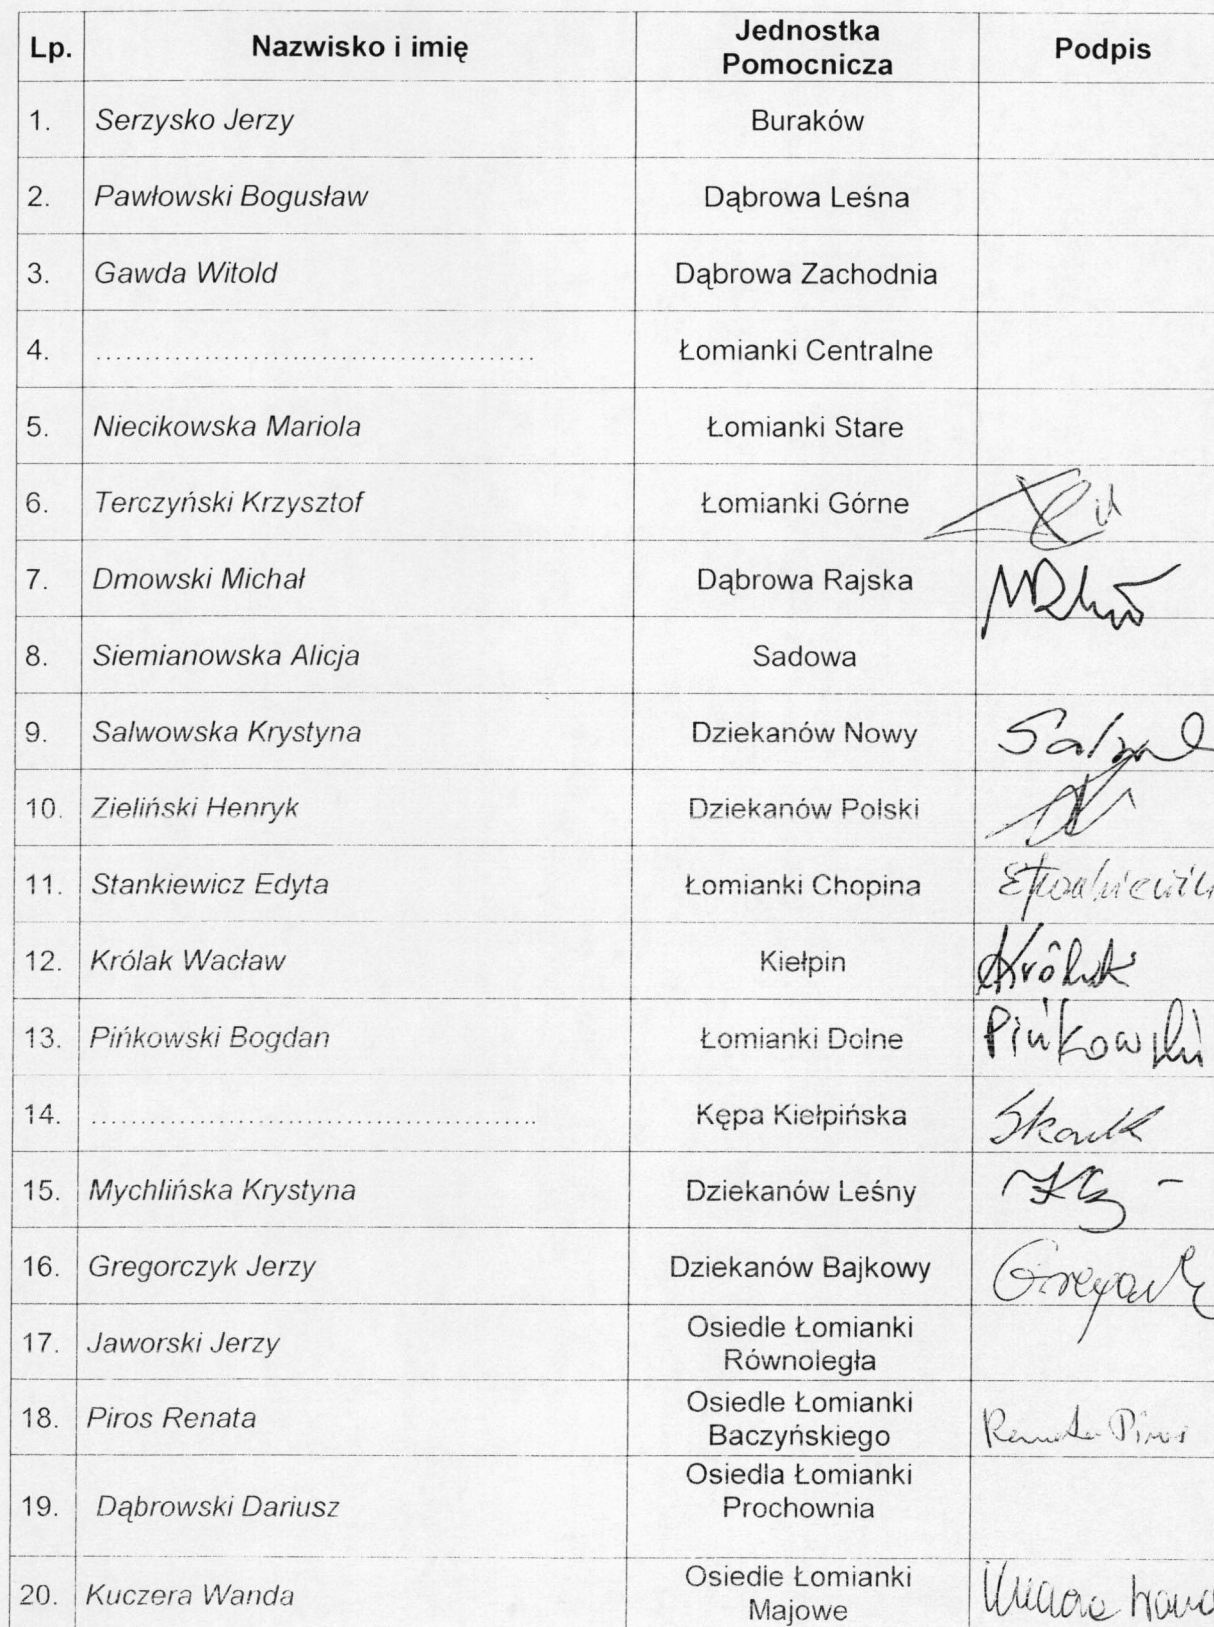 Lp. Nazwisko i imię Jednostka Pomocnicza Podpis
1. Serzysko Jerzy Buraków
2. Pawłowski Bogusław Dąbrowa Leśna
3. Gawda Witold Dąbrowa Zachodnia
4. ............................................. Łomianki Centralne
5. Niecikowska Mariola Łomianki Stare
6. Terczyński Krzysztof Łomianki Górne
7. Dmowski Michał Dąbrowa Rajska
8. Siemianowska Alicja Sadowa
9. Salwowska Krystyna Dziekanów Nowy
10. Zieliński Henryk Dziekanów Polski
11. Stankiewicz Edyta Łomianki Chopina
12. Królak Wacław Kiełpin Królak
13. Pińkowski Bogdan Łomianki Dolne Pińkowski
14. .............................................. Kępa Kiełpińska
15. Mychlińska Krystyna Dziekanów Leśny
16. Gregorczyk Jerzy Dziekanów Bajkowy
17. Jaworski Jerzy Osiedle Łomianki
Równoległa
18. Piros Renata Osiedle Łomianki
Baczyńskiego Renata Piros
19. Dąbrowski Dariusz Osiedla Łomianki
Prochownia
20. Kuczera Wanda Osiedle Łomianki
Majowe